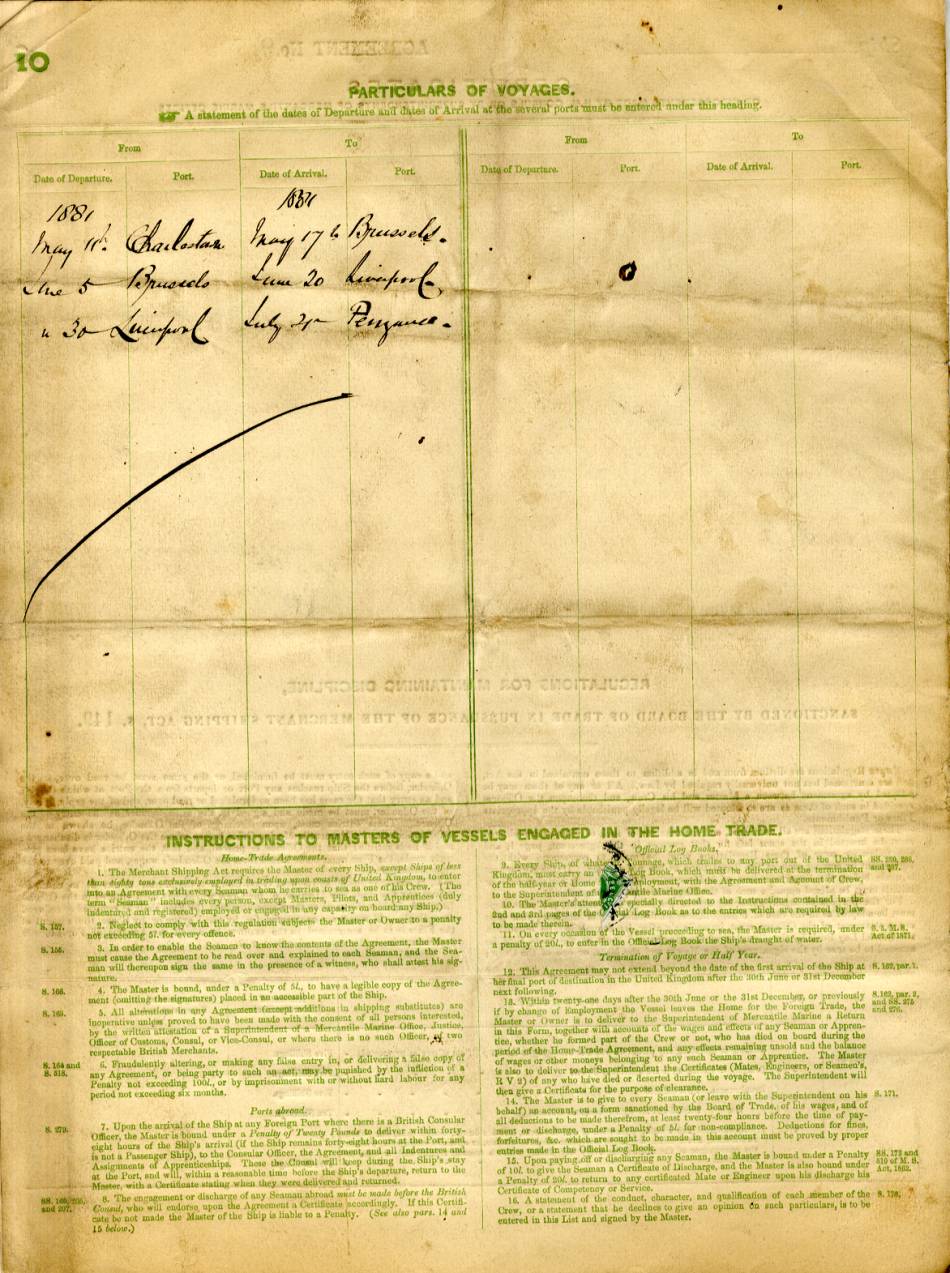 10
PARTICULARS OF VOYAGES.
A statement of the dates of Departure and dates of Arrival at the several ports must be entered under this heading.
From To From To
Date of Departure. Port. Date of Arrival. Port. Date of Departure. Port. Date of Arrival. Port.
1881 1881
May 11th Charlestown May 17th Brussels.
June 5 Brussels June 20 Liverpool
" 30 Liverpool July Penzance.
INSTRUCTIONS TO MASTERS OF VESSELS ENGAGED IN THE HOME TRADE.
Home-Trade Agreements.
1. The Merchant Shipping Act requires the Master of every Ship, except Ships of less
than eighty tons exclusively employed in trading upon coasts of United Kingdom, to enter
into an Agreement with every Seaman whom he carries to sea as one of his Crew. (The
term "Seaman" includes every person, except Masters, Pilots, and Apprentices (duly
indentured and registered) employed or engaged in any capacity on board any Ship.)
S. 157.
2. Neglect to comply with this regulation subjects the Master or Owner to a penalty
not exceeding 5l. for every offence.
S. 155.
3. In order to enable the Seamen to know the contents of the Agreement, the Master
must cause the Agreement to be read over and explained to each Seaman, and the Sea-
man will thereupon sign the same in the presence of a witness, who shall attest his sig-
nature.
S. 166.
4. The Master is bound, under a Penalty of 5l., to have a legible copy of the Agree-
ment (omitting the signatures) placed in an accessible part of the Ship.
S. 163.
5. All alterations in any Agreement (except additions in shipping substitutes) are
inoperative unless proved to have been made with the consent of all persons interested,
by the written attestation of a Superintendent of a Mercantile Marine Office, Justice,
Officer of Customs, Consul, or Vice-Consul, or where there is no such Officer, of two
respectable British Merchants.
S. 164 and
S. 518.
6. Fraudulently altering, or making any false entry in, or delivering a false copy of
any Agreement, or being party to such an act, may be punished by the infliction of a
Penalty not exceeding 100l., or by imprisonment with or without hard labour for any
period not exceeding six months.
Ports abroad.
S. 279.
7. Upon the arrival of the Ship at any Foreign Port where there is a British Consular
Officer, the Master is bound under a Penalty of Twenty Pounds to deliver within forty-
eight hours of the Ship's arrival (if the Ship remains forty-eight hours at the Port, and
is not a Passenger Ship), to the Consular Officer, the Agreement, and all Indentures and
Assignments of Apprenticeships. These the Consul will keep during the Ship's stay
at the Port, and will, within a reasonable time before the Ship's departure, return to the
Master, with a Certificate stating when they were delivered and returned.
and 207.
8. The engagement or discharge of any Seaman abroad must be made before the British
Consul, who will endorse upon the Agreement a Certificate accordingly. If this Certifi-
cate be not made the Master of the Ship is liable to a Penalty. (See also pars. 14 and
15 below.)
Official Log Books.
9. Every Ship, of whatever tonnage, which trades to any port out of the United
Kingdom, must carry an Book, which must be delivered at the termination
of the half-year or Home Employment, with the Agreement and Account of Crew,
to the Superintendent of Mercantile Marine Office.
10. The Master's attention specially directed to the Instructions contained in the
2nd and 3rd pages of the Official Log Book as to the entries which are required by law
to be made therein.
11. On every occasion of the Vessel proceeding to sea, the Master is required, under
a penalty of 20l., to enter in the Official Log Book the Ship's draught of water.
S. 5. M. S.
Act of 1871.
Termination of Voyage or Half Year.
12. This Agreement may not extend beyond the date of the first arrival of the Ship at
her final port of destination in the United Kingdom after the 30th June or 31st December
next following.
S. 162, par. 1.
13. Within twenty-one days after the 30th June or the 31st December, or previously
if by change of Employment the Vessel leaves the Home for the Foreign Trade, the
Master or Owner is to deliver to the Superintendent of Mercantile Marine a Return
in this Form, together with accounts of the wages and effects of any Seaman or Appren-
tice, whether he formed part of the Crew or not, who has died on board during the
period of the Home-Trade Agreement, and any effects remaining unsold and the balance
of wages or other moneys belonging to any such Seaman or Apprentice. The Master
is also to deliver to the Superintendent the Certificates (Mates, Engineers, or Seamen's,
R V 2) of any who have died or deserted during the voyage. The Superintendent will
then give a Certificate for the purpose of clearance.
S. 162, par. 2,
and SS. 275
and 276.
14. The Master is to give to every Seaman (or leave with the Superintendent on his
behalf) an account, on a form sanctioned by the Board of Trade, of his wages, and of
all deductions to be made therefrom, at least twenty-four hours before the time of pay-
ment or discharge, under a Penalty of 5l. for non-compliance. Deductions for fines,
forfeitures, &c. which are sought to be made in this account must be proved by proper
entries made in the Official Log Book.
S. 171.
15. Upon paying off or discharging any Seaman, the Master is bound under a Penalty
of 10l. to give the Seaman a Certificate of Discharge, and the Master is also bound under
a Penalty of 20l. to return to any certificated Mate or Engineer upon his discharge his
Certificate of Competency or Service.
16. A statement of the conduct, character, and qualification of each member of the
Crew, or a statement that he declines to give an opinion on such particulars, is to be
entered in this List and signed by the Master.